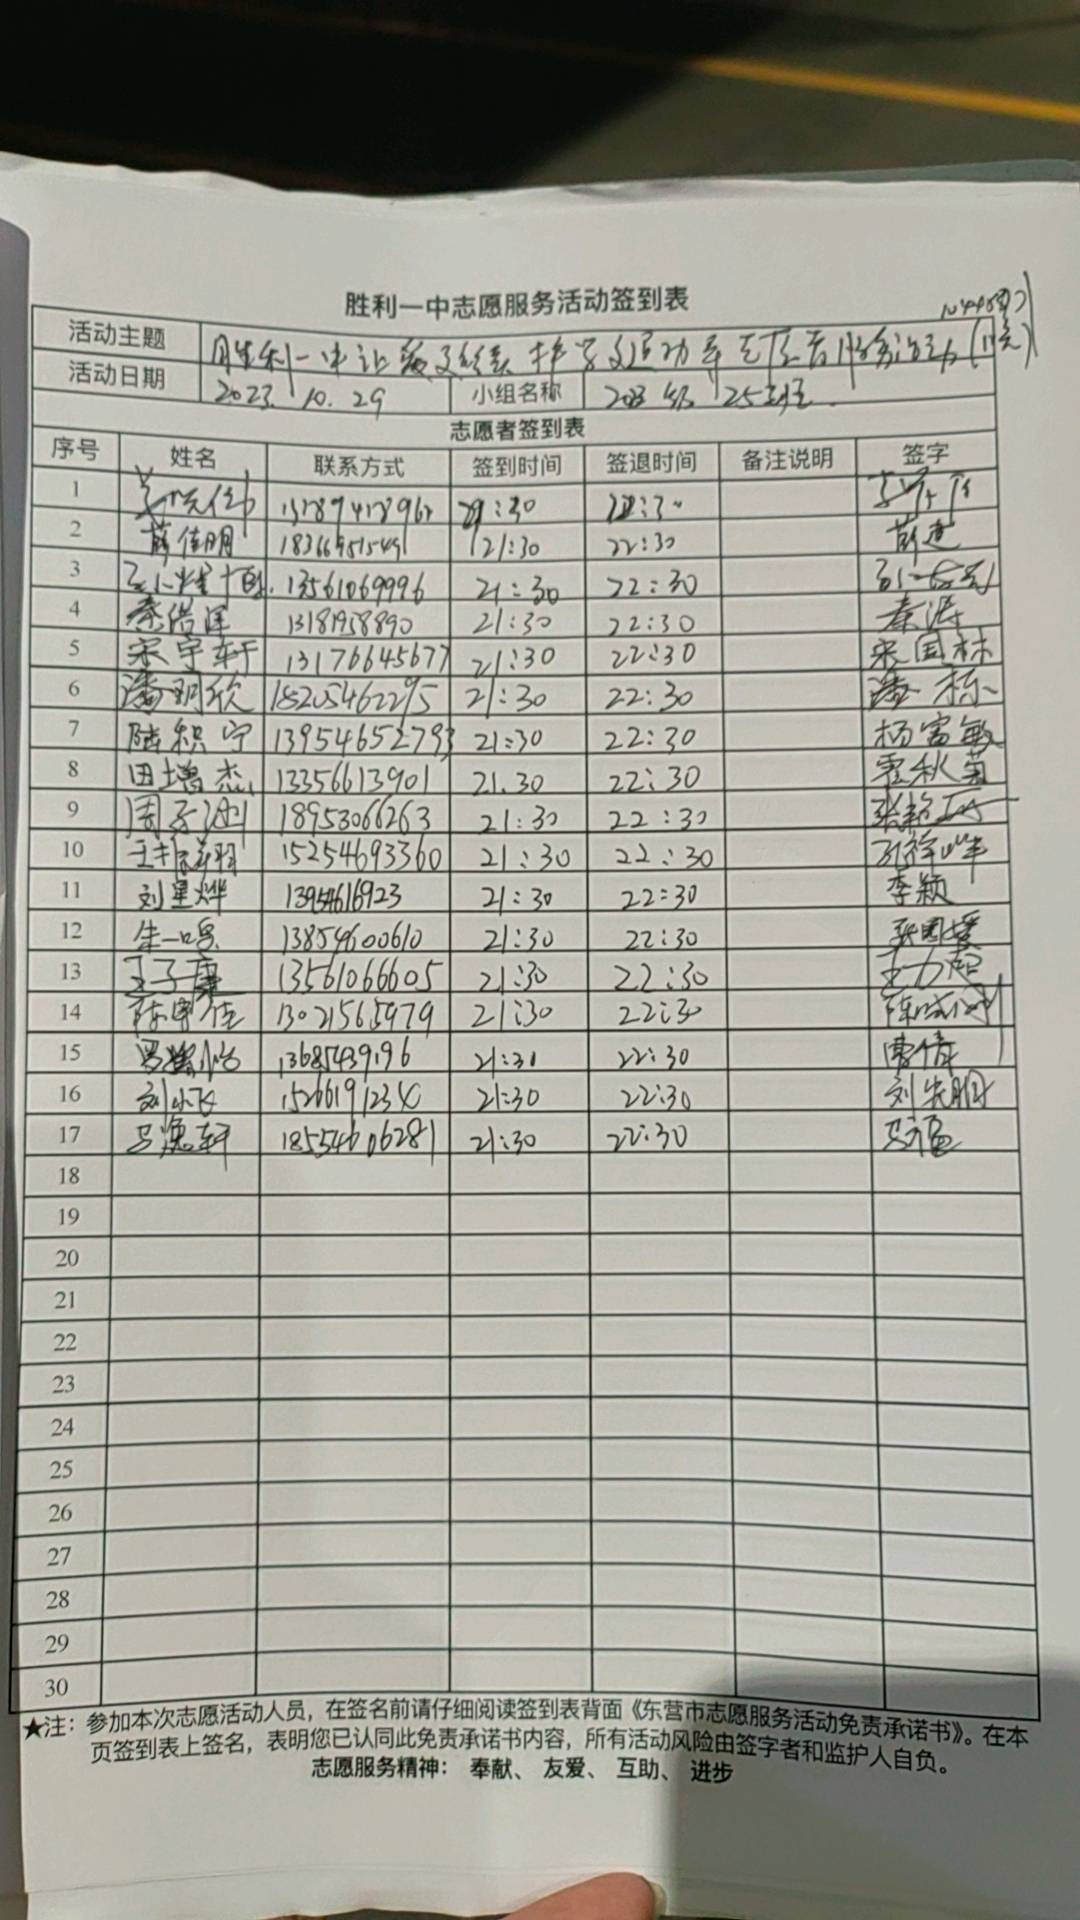 胜利一中志愿服务活动签到表
活动主题 胜利一中
活动日期 2023.10.29 小组名称 级25班
志愿者签到表
序号 姓名 联系方式 签到时间 签退时间 备注说明 签字
1
2 薛佳明 21:30 22:30 薛建
3 13561069996 21:30 22:30
4 秦浩洋 13181958890 21:30 22:30 秦涛
5 宋宇轩 13176645677 21:30 22:30 宋国林
6 潘玥欣 15205462295 21:30 22:30 潘栋
7 陆积宁 13954652793 21:30 22:30 杨富敏
8 田增杰 13356613901 21.30 22:30 霍秋菊
9 周子 18953066263 21:30 22:30
10 王振翔 15254693360 21:30 22:30
11 刘星烨 13954616923 21:30 22:30 李颖
12 朱一鸣 13854600610 21:30 22:30
13 王子康 13561066605 21:30 22:30 王力超
14 13021565979 21:30 22:30
15 13685439196 21:30 22:30 曹倩
16 刘小飞 21:30 22:30 刘先明
17 马逸轩 18554606281 21:30 22:30 马福
18
19
20
21
22
23
24
25
26
27
28
29
30
★注：参加本次志愿活动人员，在签名前请仔细阅读签到表背面《东营市志愿服务活动免责承诺书》。在本
页签到表上签名，表明您已认同此免责承诺书内容，所有活动风险由签字者和监护人自负。
志愿服务精神： 奉献、 友爱、 互助、 进步